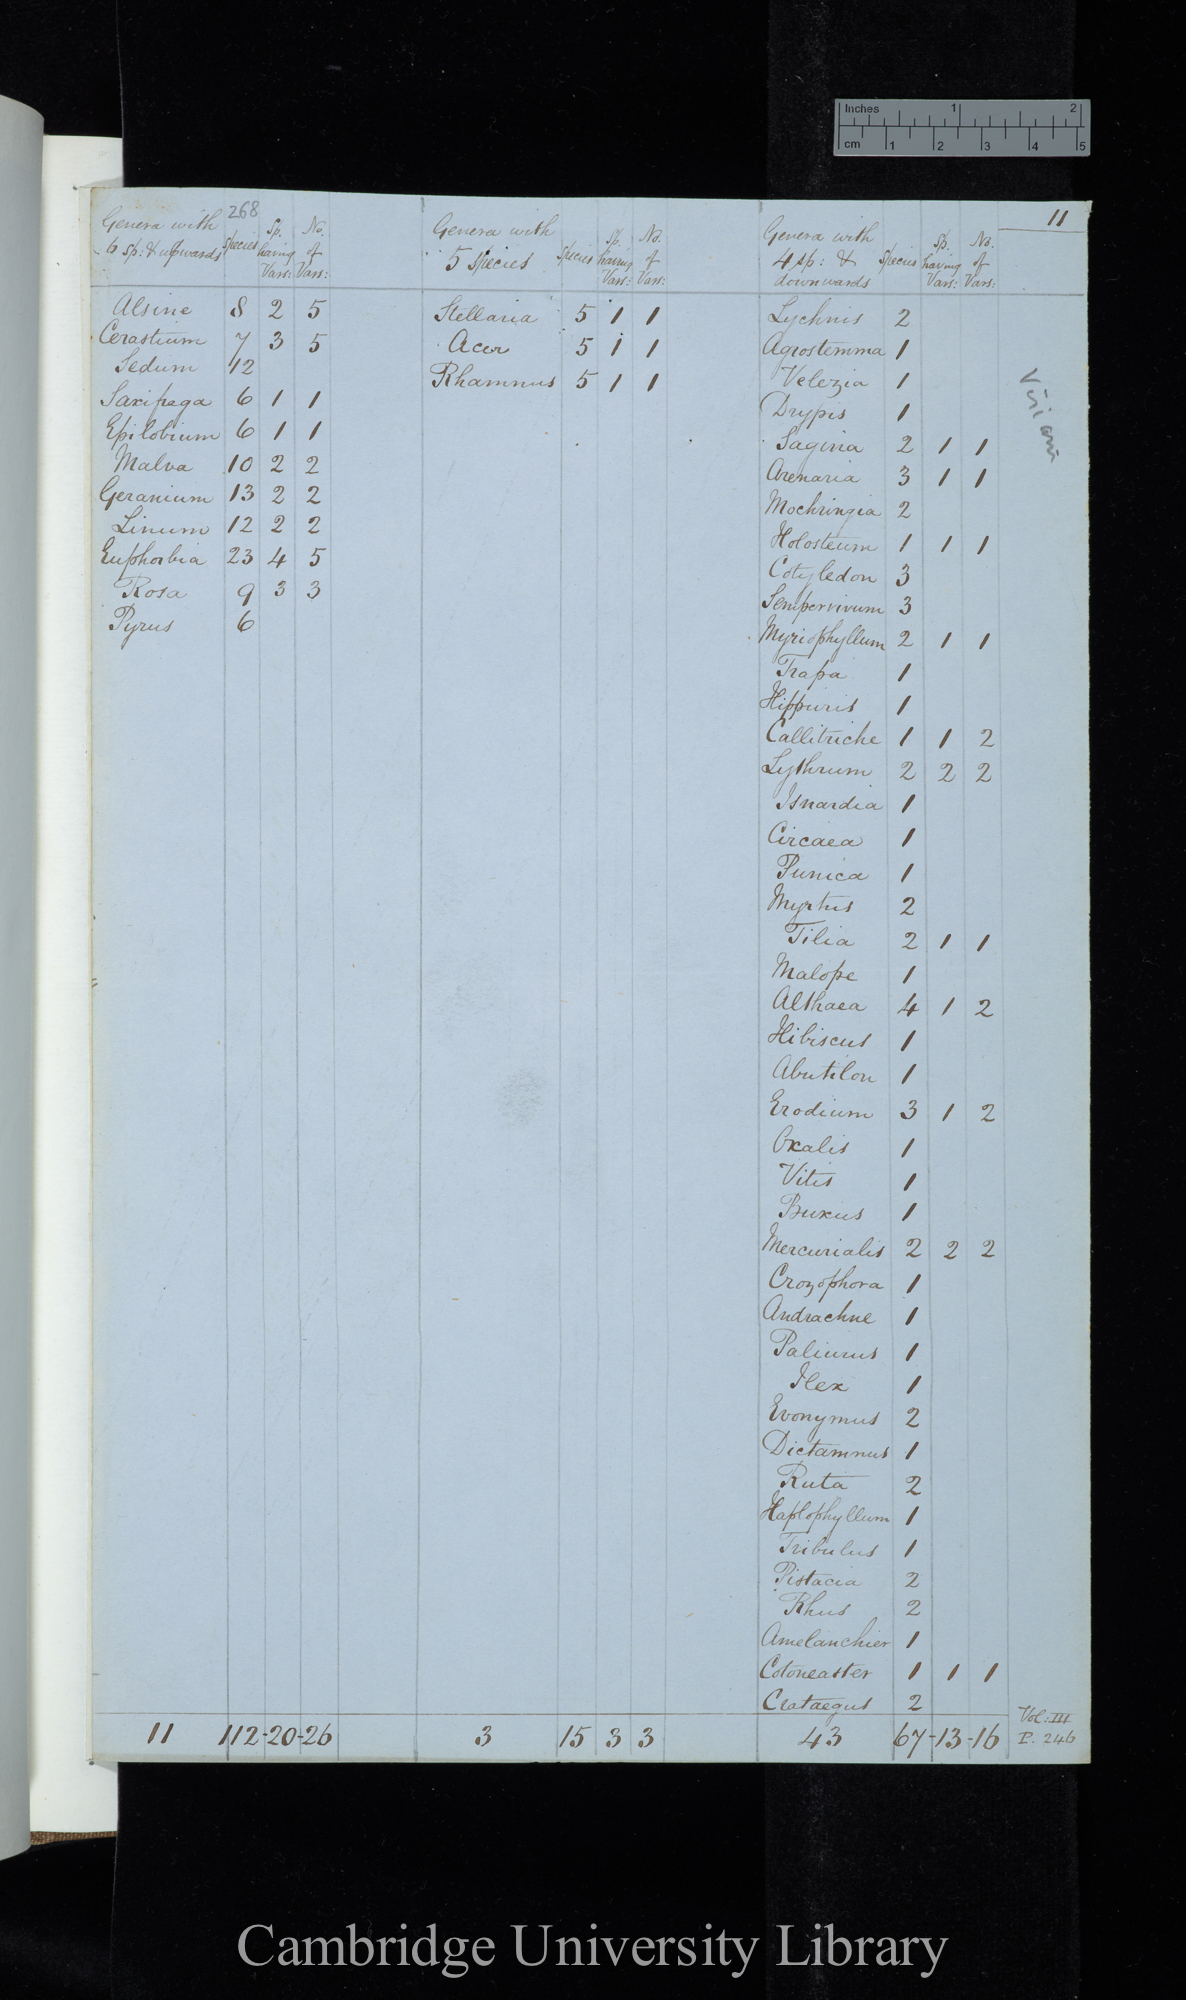 Inches 1 2
cm 1 2 3 4 5
11
268
Genera with 6 sp: & upwards | Species | Sp. having Vars: | No. of Vars:
Alsine 8 2 5
Cerastium 7 3 5
Sedum 12
Saxifraga 6 1 1
Epilobium 6 1 1
Malva 10 2 2
Geranium 13 2 2
Linum 12 2 2
Euphorbia 23 4 5
Rosa 9 3 3
Pyrus 6
11 112-20-26
Genera with 5 Species | Species | Sp. having Vars: | No. of Vars:
Stellaria 5 1 1
Acer 5 1 1
Rhamnus 5 1 1
3 15 3 3
Genera with 4 sp: & downwards | Species | Sp. having Vars: | No. of Vars:
Lychnis 2
Agrostemma 1
Velezia 1
Drypis 1
Sagina 2 1 1
Arenaria 3 1 1
Moehringia 2
Holosteum 1 1 1
Cotyledon 3
Sempervivum 3
Myriophyllum 2 1 1
Trapa 1
Hippuris 1
Callitriche 1 1 2
Lythrum 2 2 2
Isnardia 1
Circaea 1
Punica 1
Myrtus 2
Tilia 2 1 1
Malope 1
Althaea 4 1 2
Hibiscus 1
Abutilon 1
Erodium 3 1 2
Oxalis 1
Vitis 1
Buxus 1
Mercurialis 2 2 2
Crozophora 1
Andrachne 1
Paliurus 1
Ilex 1
Evonymus 2
Dictamnus 1
Ruta 2
Haplophyllum 1
Tribulus 1
Pistacia 2
Rhus 2
Amelanchier 1
Cotoneaster 1 1 1
Crataegus 2
43 67-13-16
Vol: III
P. 246
Cambridge University Library